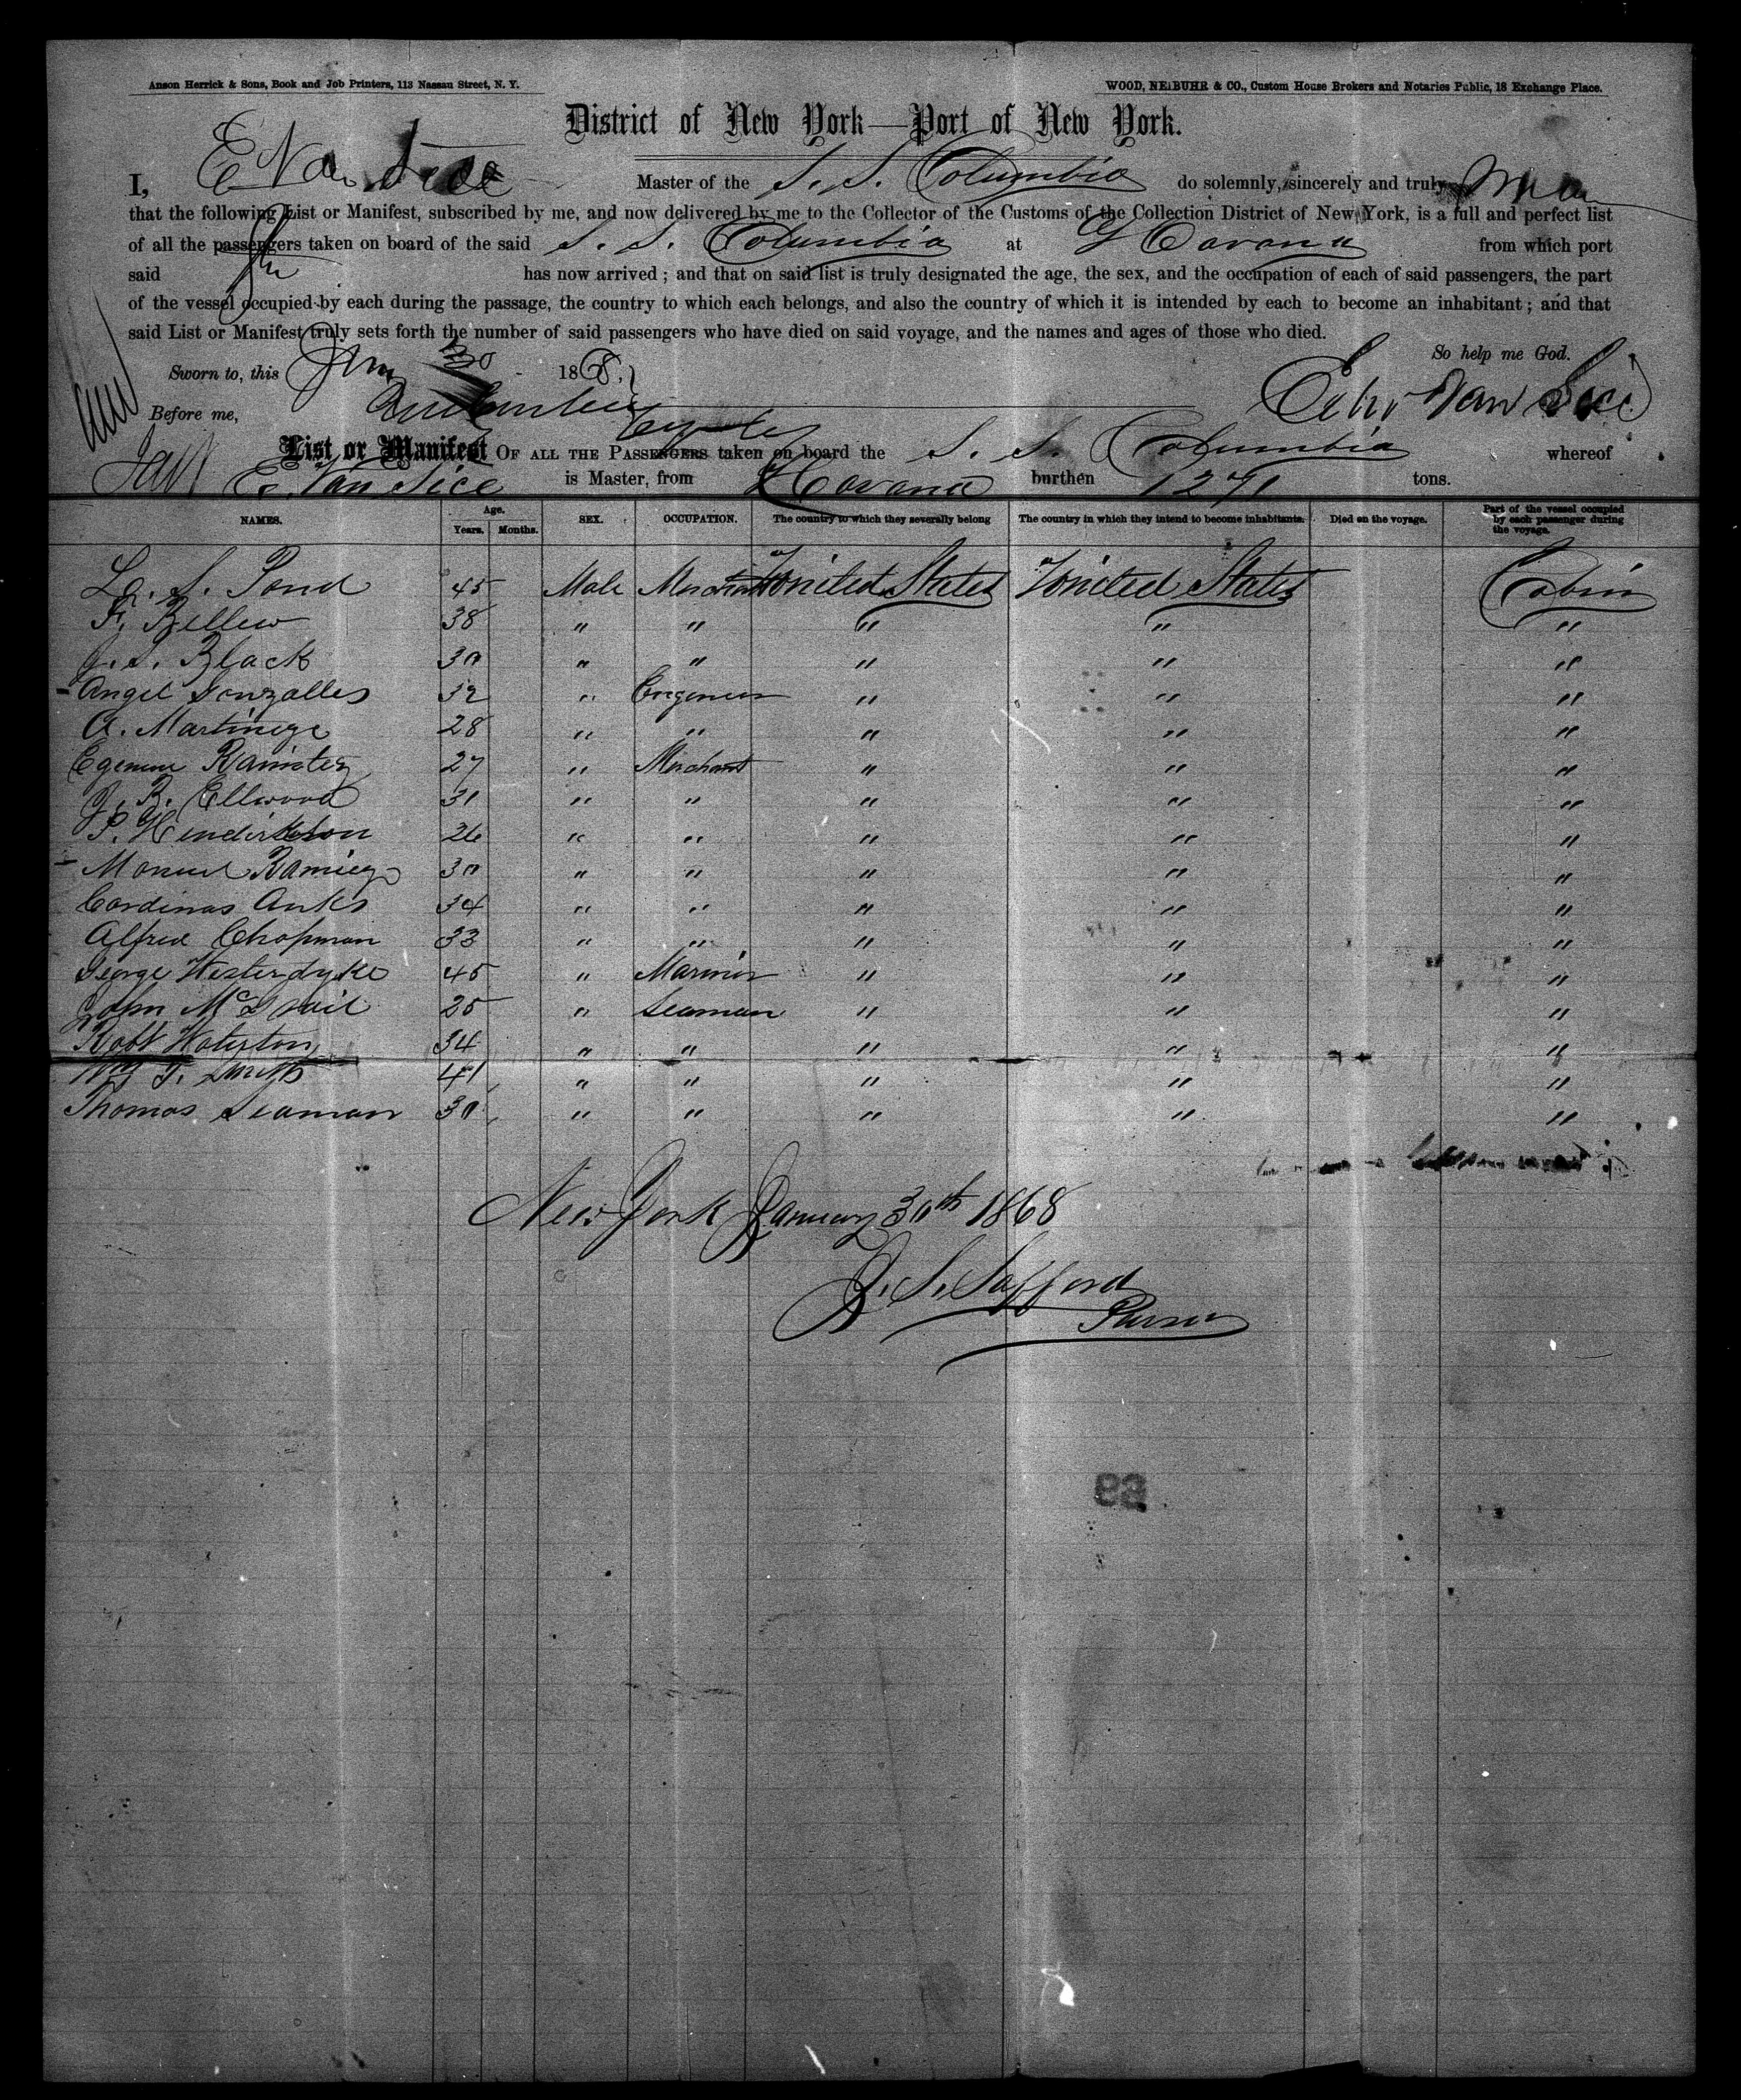 Anson Herrick & Sons, Book and Job Printers, 113 Nassau Street, N. Y.
WOOD, NEIBUHR & CO., Custom House Brokers and Notaries Public, 18 Exchange Place.
District of New York—Port of New York.
I, E Van Sice Master of the S. S. Columbia do solemnly, sincerely and truly
that the following List or Manifest, subscribed by me, and now delivered by me to the Collector of the Customs of the Collection District of New York, is a full and perfect list
of all the passengers taken on board of the said S. S. Columbia at Havana from which port
said has now arrived; and that on said list is truly designated the age, the sex, and the occupation of each of said passengers, the part
of the vessel occupied by each during the passage, the country to which each belongs, and also the country of which it is intended by each to become an inhabitant; and that
said List or Manifest truly sets forth the number of said passengers who have died on said voyage, and the names and ages of those who died.
So help me God.
Sworn to, this Jany 30 1868.
Before me, Edw Van Sice
List or Manifest OF ALL THE PASSENGERS taken on board the S. S. Columbia whereof
E. Van Sice is Master, from Havana burthen 1271 tons.
NAMES. Age. Years. Months. SEX. OCCUPATION. The country to which they severally belong The country in which they intend to become inhabitants. Died on the voyage. Part of the vessel occupied by each passenger during the voyage.
L. S. Pond 45 Male Merchant United States United States Cabin
F. Bellew 38 " " " " "
J. S. Black 30 " " " " "
Angel Gonzalles 32 " Engineer " " "
A. Martinez 28 " " " " "
27 " Merchant " " "
J. B. Ellwood 31 " " " " "
P. Henderkson 26 " " " " "
Manuel Ramiez 30 " " " " "
Cardinas Anks 34 " " " " "
Alfred Chapman 33 " " " " "
George Westerdyke 45 " Mariner " " "
John 25 " Seaman " " "
Robt 34 " " " " "
Smith 41 " " " " "
Thomas Seaman 30 " " " " "
New York January 30th 1868
J. S. Safford
Purser